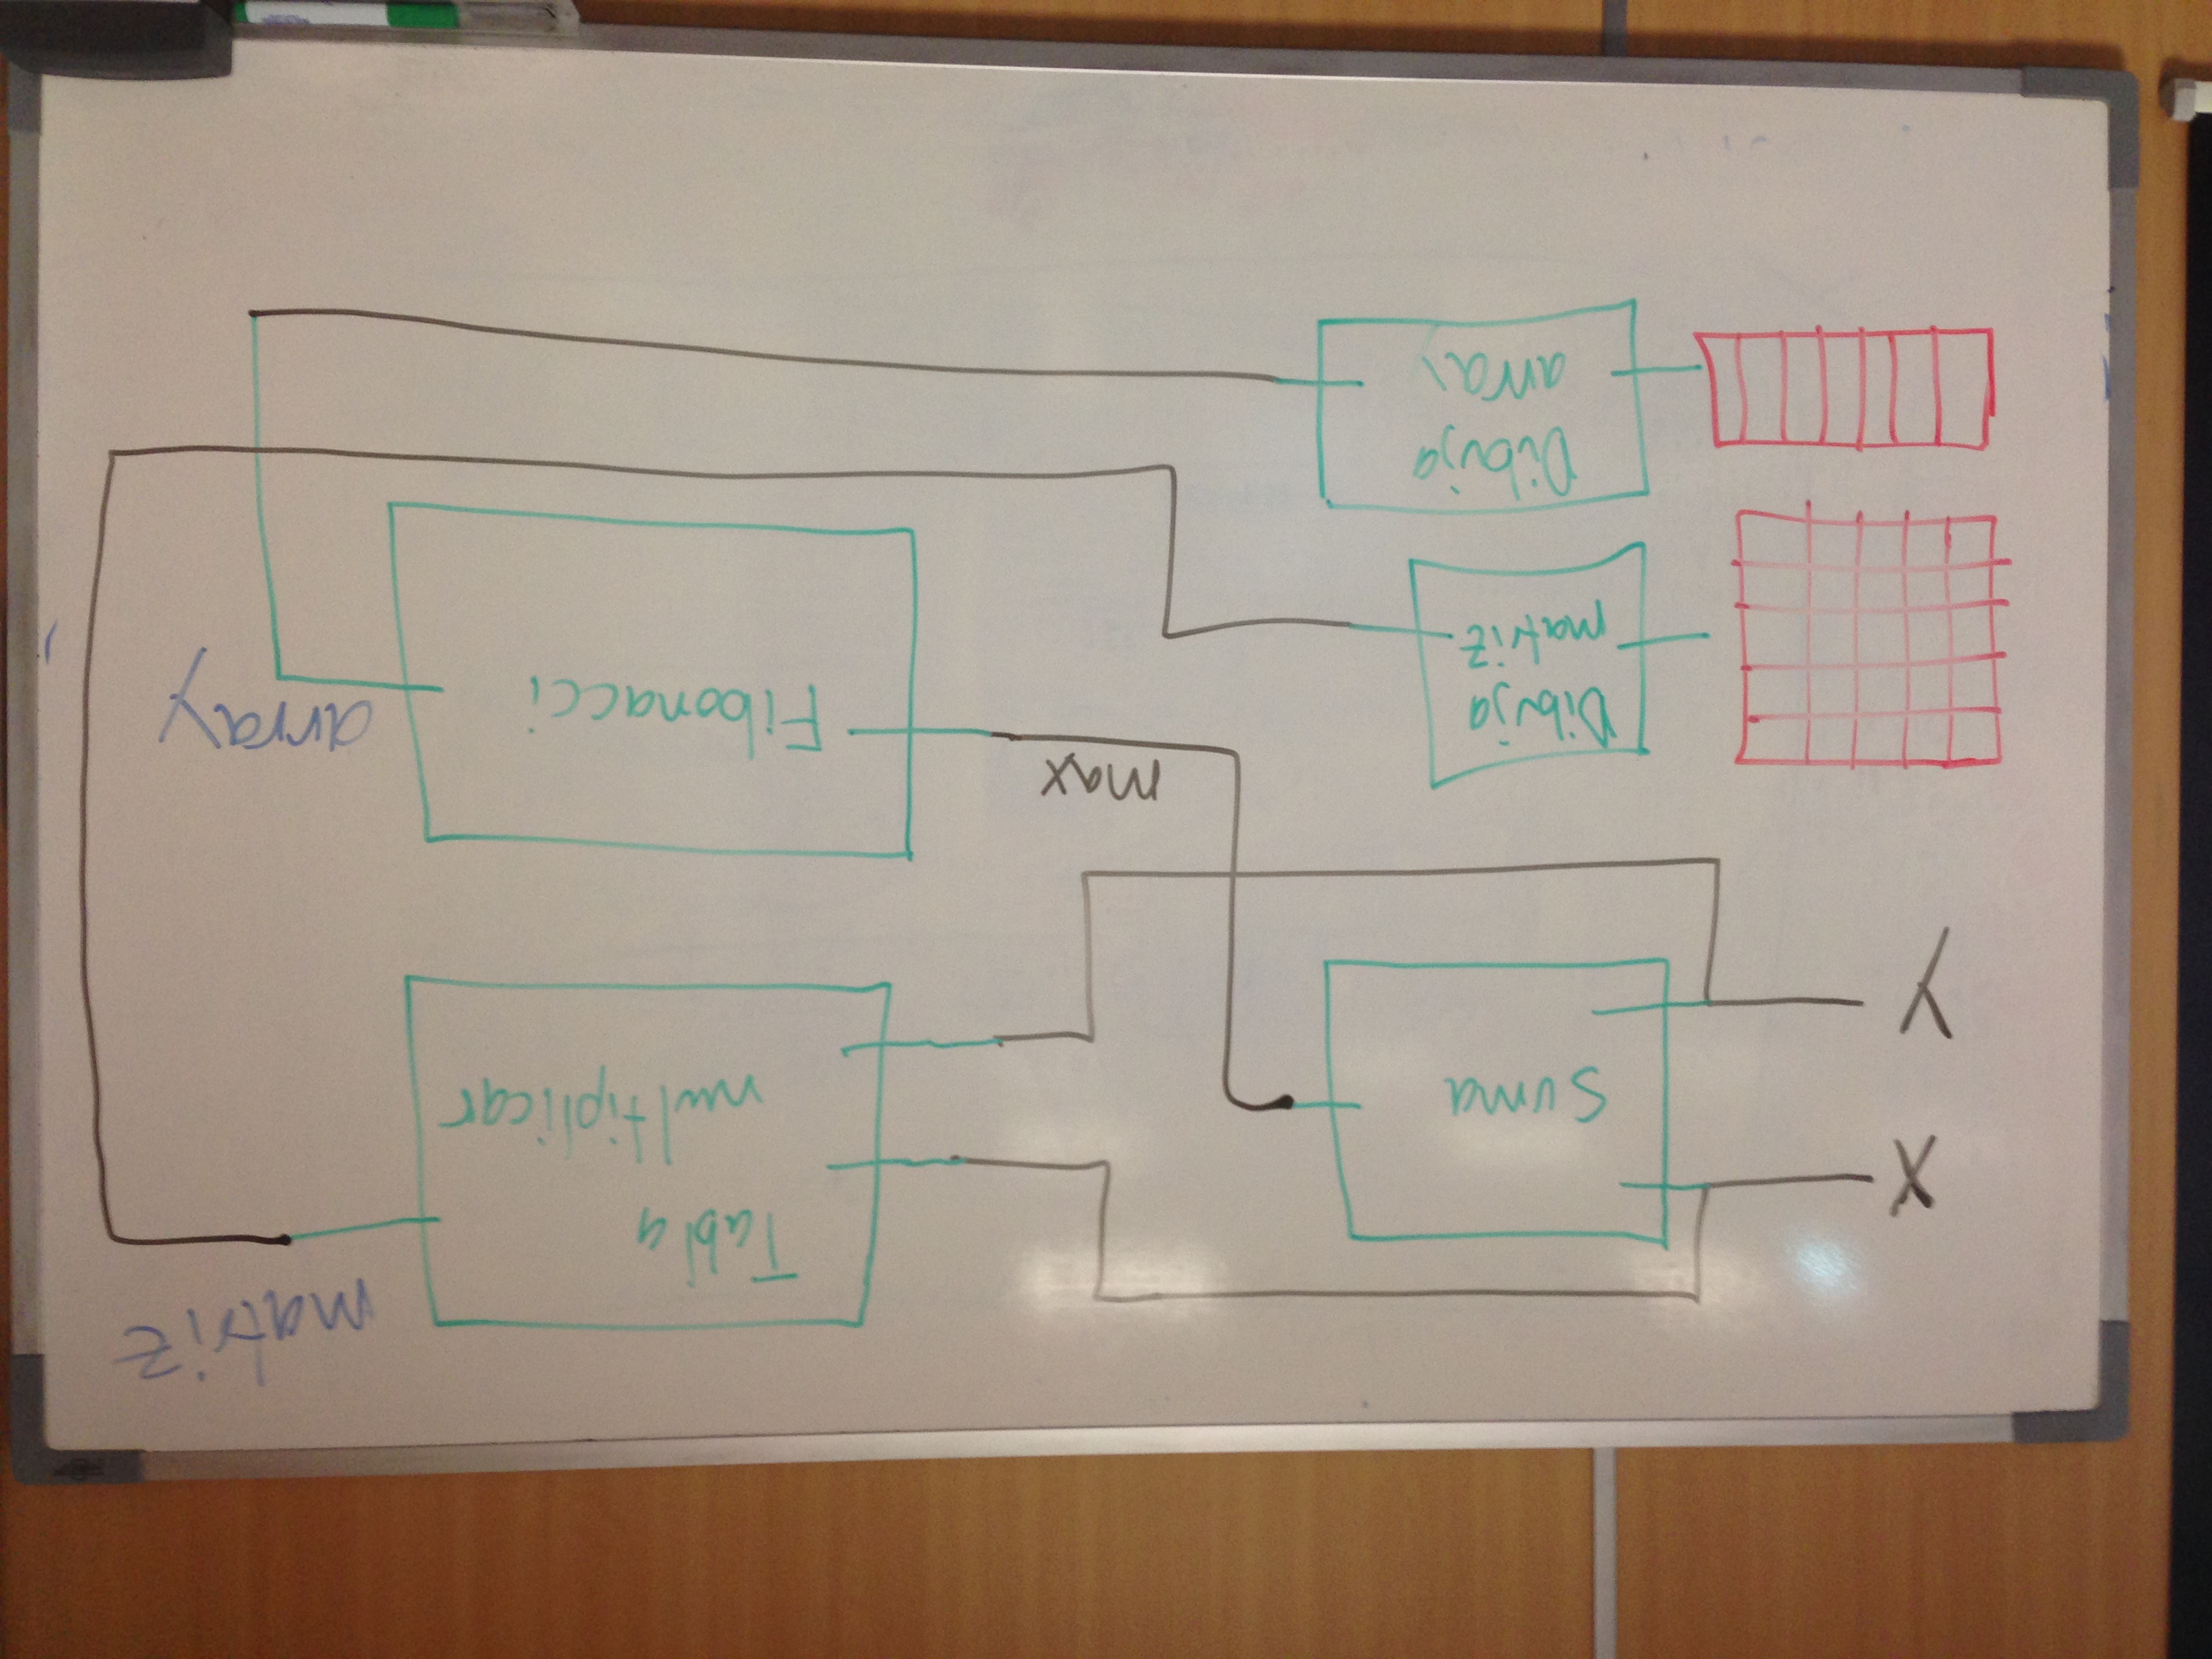 matriz
Tabla
multiplicar
X
Suma
y
max
Fibonacci
array
Dibuja
matriz
Dibuja
array